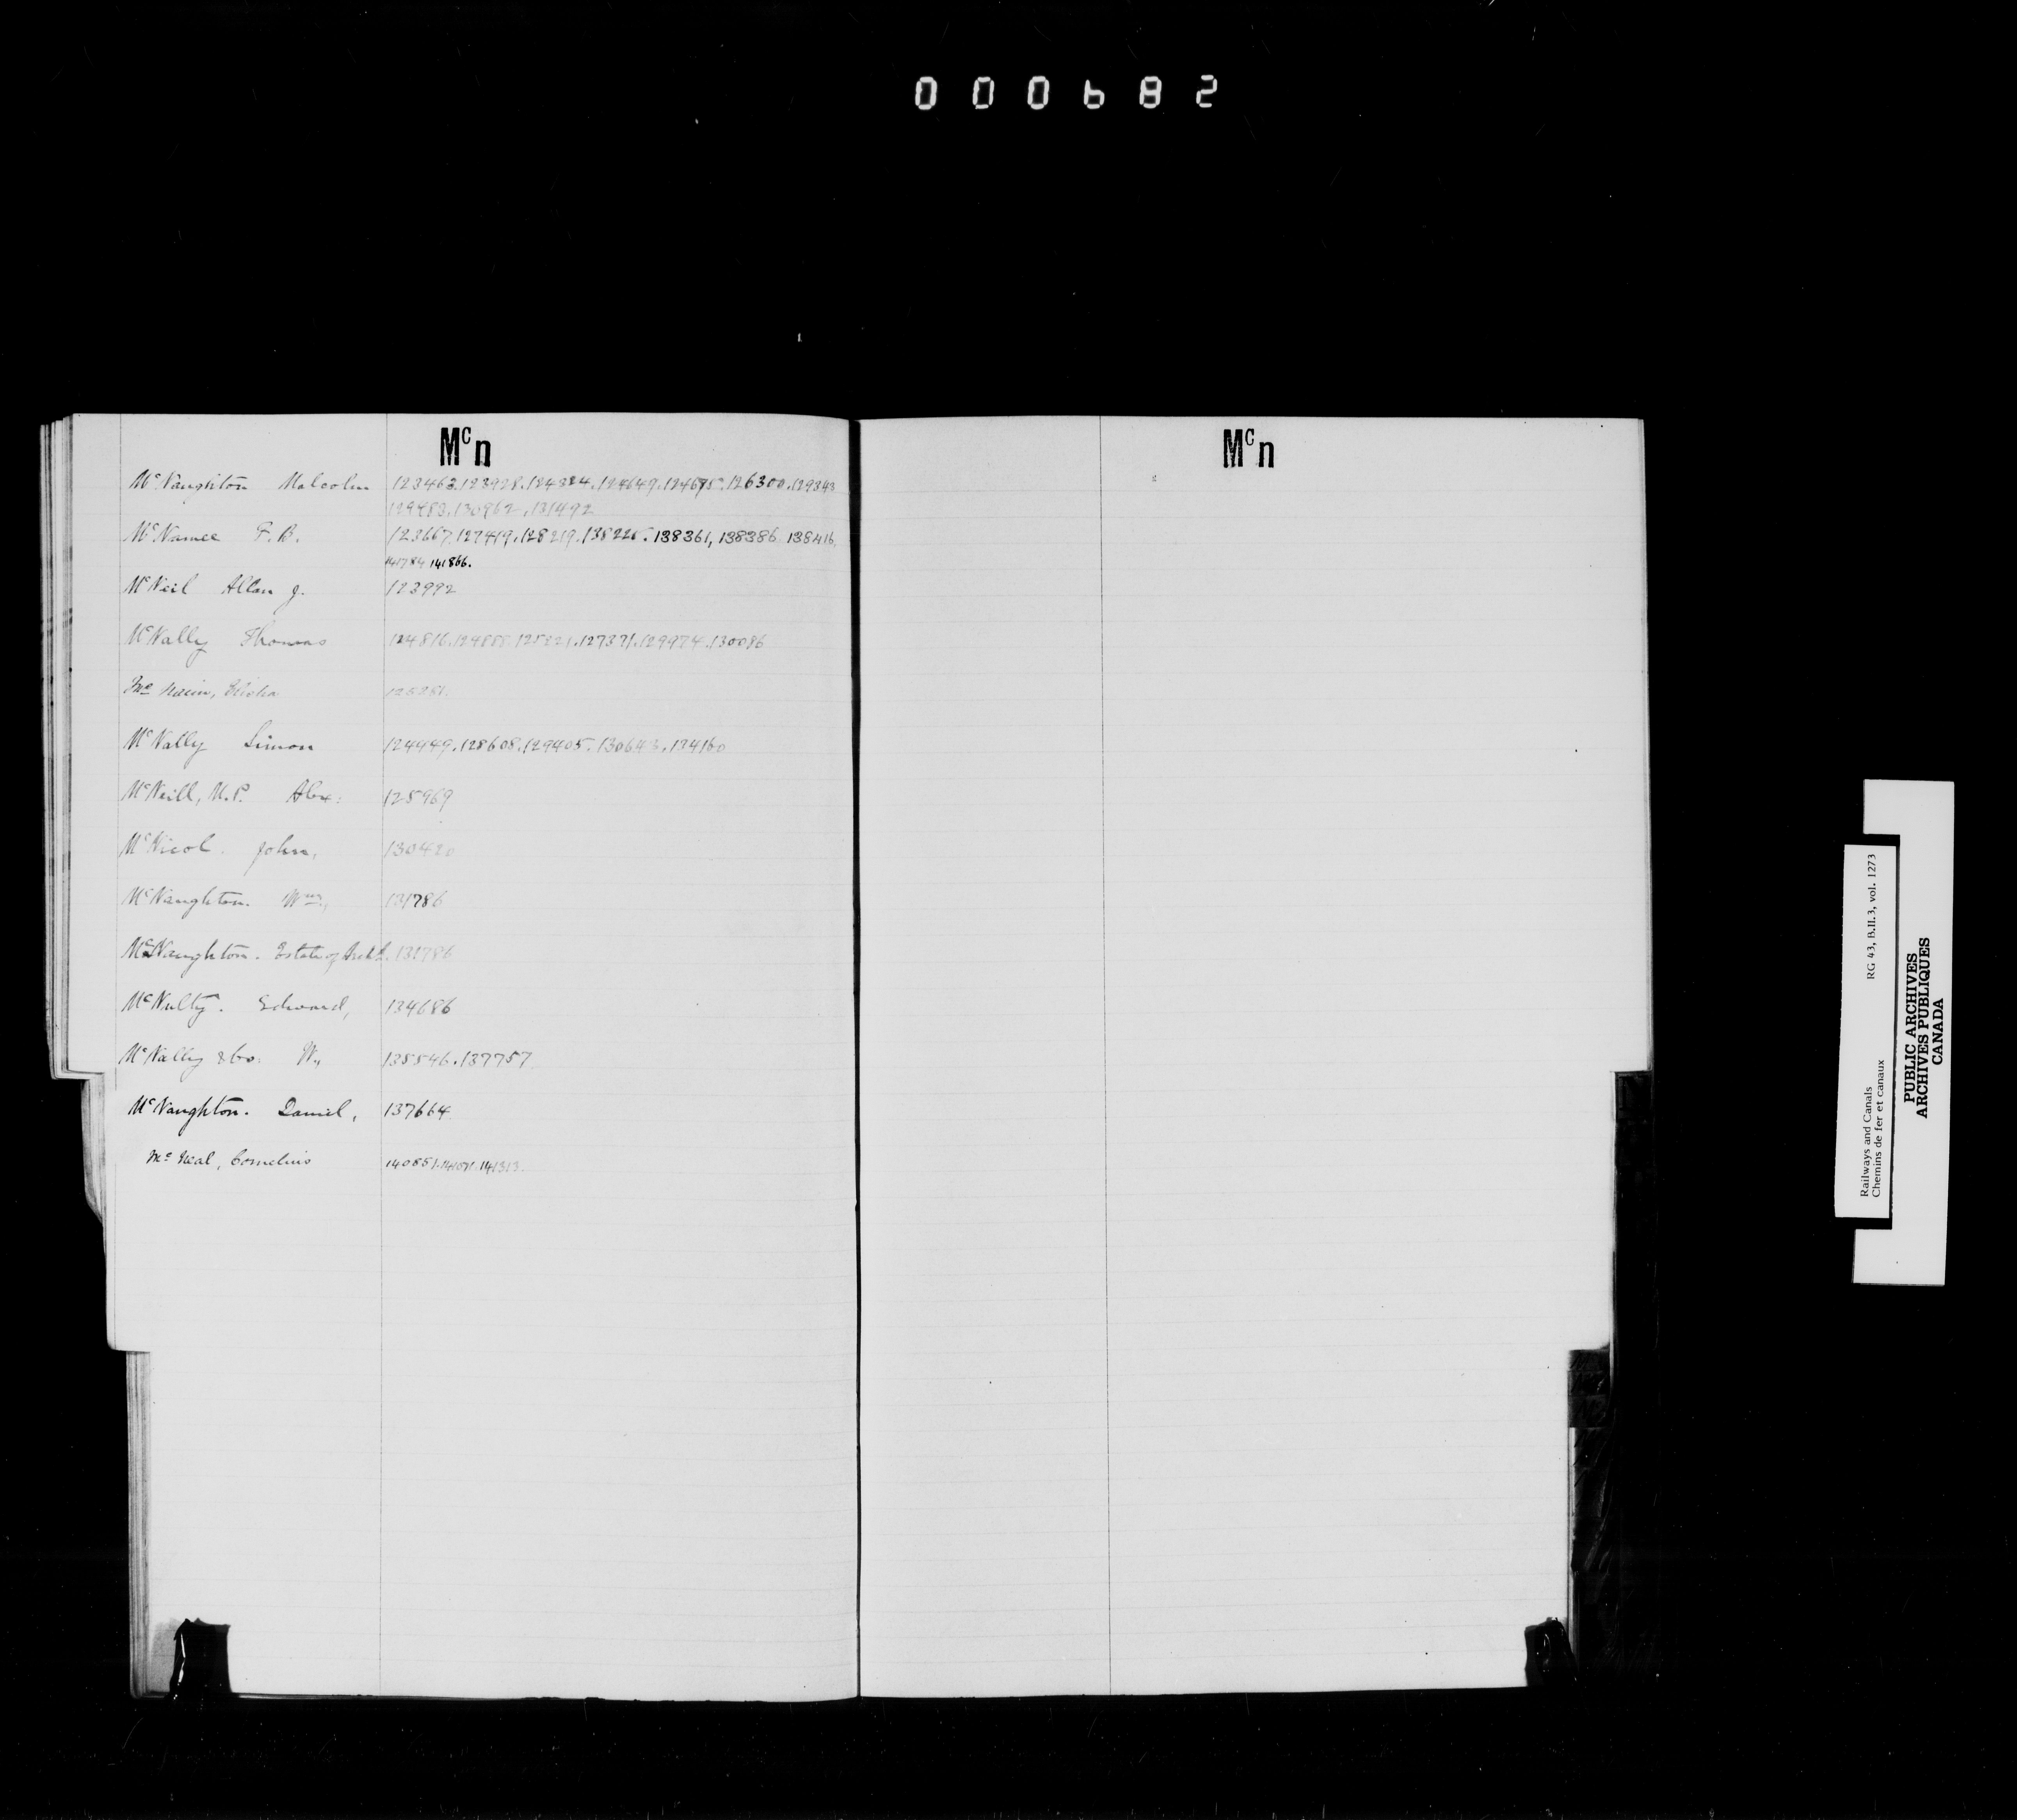 000682
Mc n
McNaughton Malcolm 123463.123928.124324.124649.124675.126300.129343
129483.130962.131492
McNamee F.B. 123667.127419.128219.138225.138361, 138386 138416.
141784 141866.
McNeil Allan J. 123992
McNally Thomas 124816.124888.125221.127371.129974.130086
Mc Nairn, Elisha 125251.
McNally Simon 124949.128608.129405.130643.134160
McNeill, M.P. Alex: 125969
McNicol. John, 130420
McNaughton. Wm., 131786
McNaughton. Estate of Archd. 131786
McNulty. Edward, 134686
McNally & Co. W., 135546.137757.
McNaughton. Daniel, 137664
Mc Neal, Cornelius 140851. 141313.
Mc n
Railways and Canals RG 43, B.II.3, vol. 1273
Chemins de fer et canaux
PUBLIC ARCHIVES
ARCHIVES PUBLIQUES
CANADA